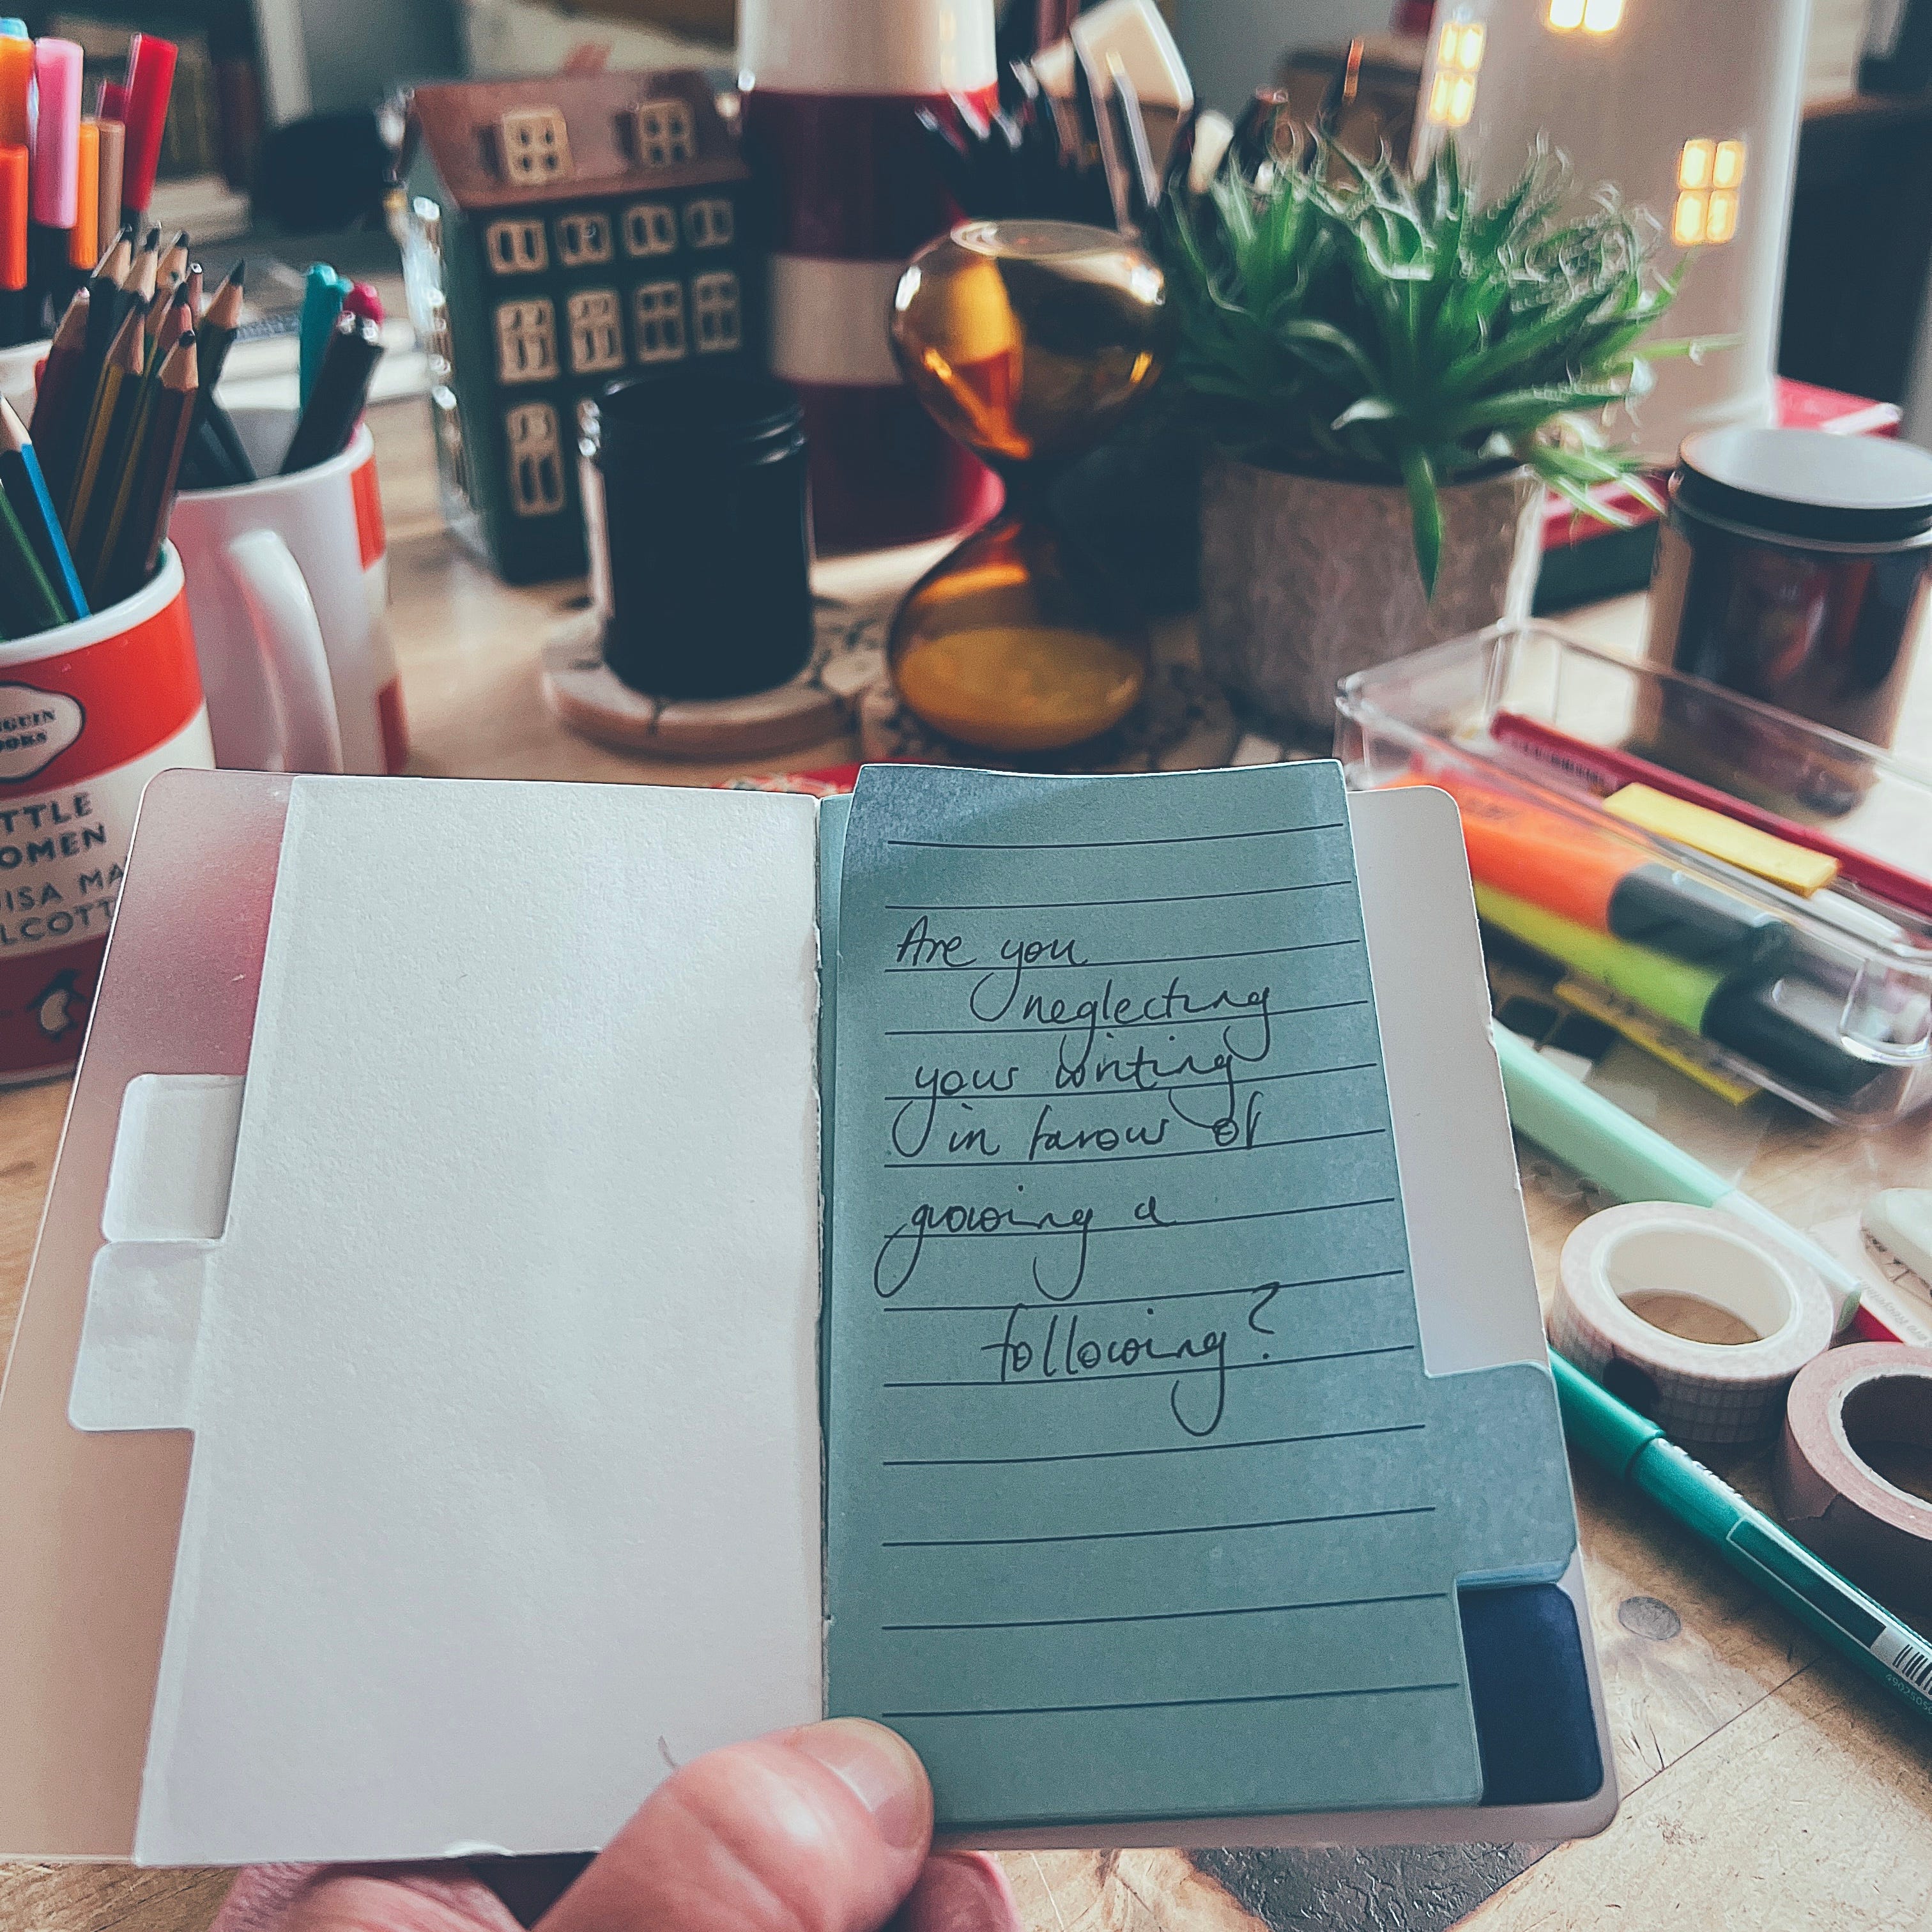 GUIN
OOKS
TTLE
OMEN
ISA MA
LCOTT
Are you
neglecting
your writing
in favour of
growing a
following?